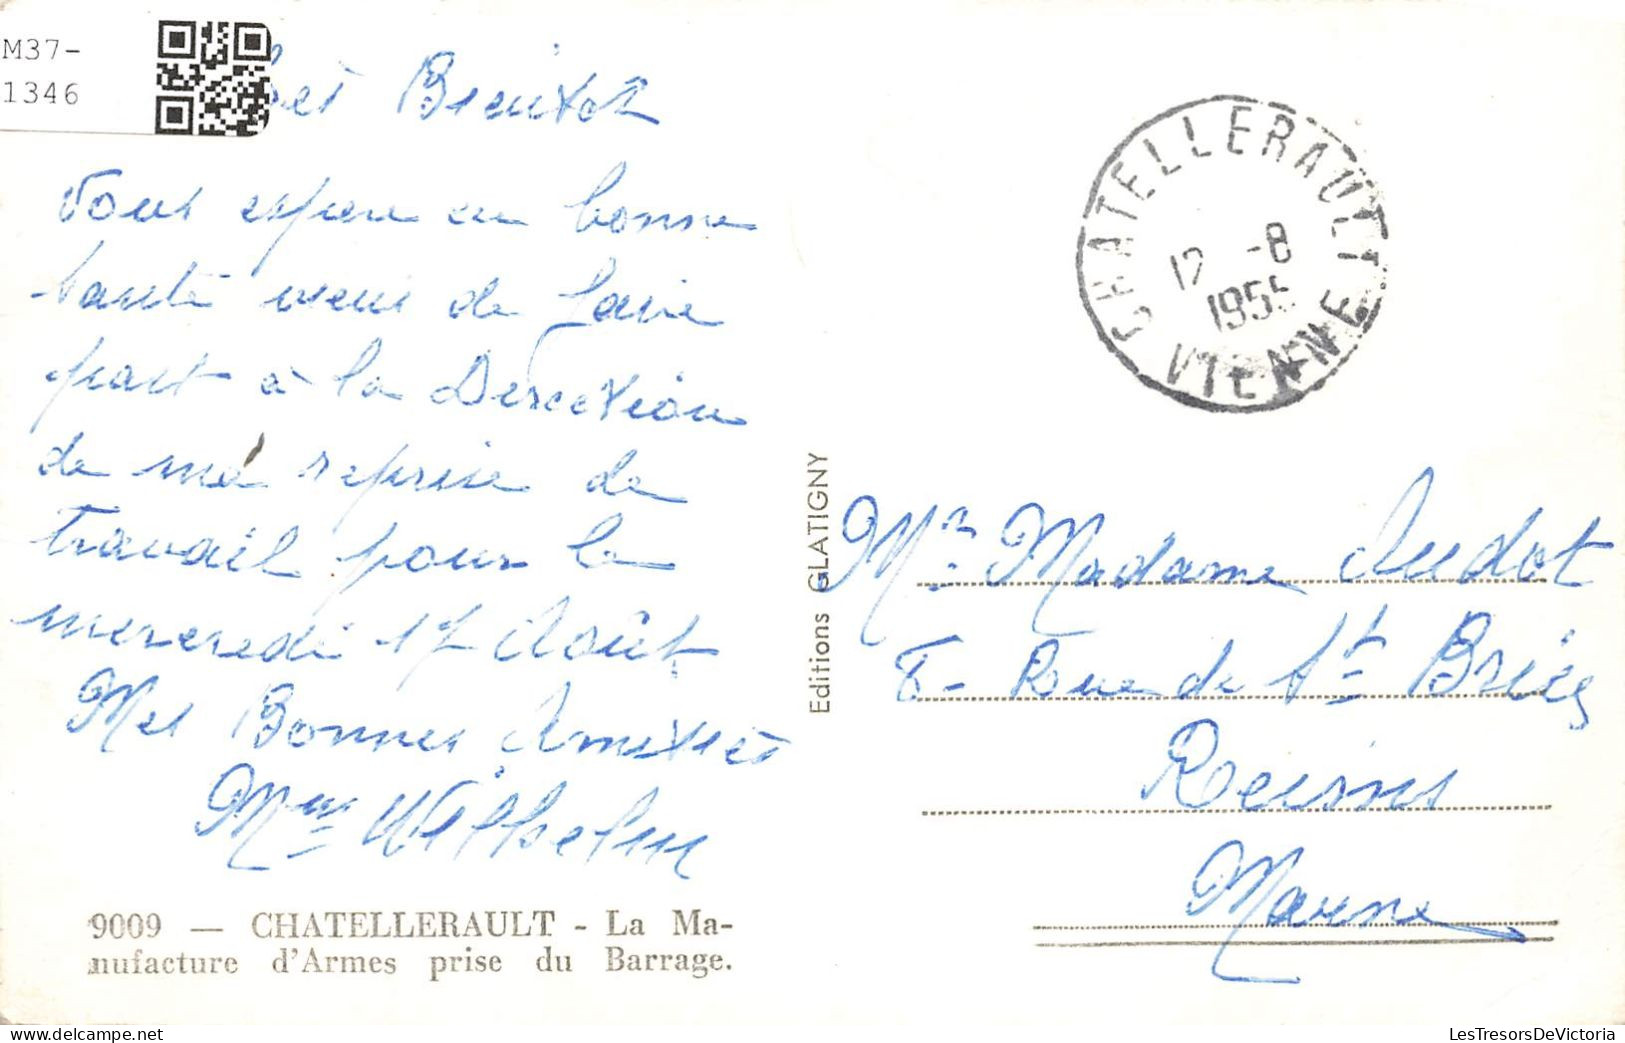 M37-
1346
et Bientot
Vous espère en bonne
santé veux de faire
part à la Direction
de ma reprise de
travail pour le
mercredi 17 Août
Mes Bonnes Amitiés
Mme Wilhelm
9009 — CHATELLERAULT - La Ma-
nufacture d'Armes prise du Barrage.
Editions GLATIGNY
CHATELLERAULT
12 -8
1955
VIENNE
Mr Madame Audot
8 - Rue de St Brice
Reims
Marne
LesTresorsDeVictoria